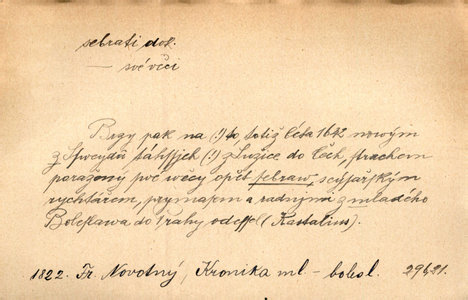 sebrati dok.
— své věci
Brzy pak na (:) to, totiž léta 1642 nowým
z Sweydů táhssjch (:) z Lužice do Čech, strachem
poražený své wěcy opět sebraw, s cýsařským
rychtářem, prymasem a radnými z mladého
Boleslawa do Prahy odesse (Kastalius).
1822. Fr. Novotný, Kronika ml-bolesl. 296,21.